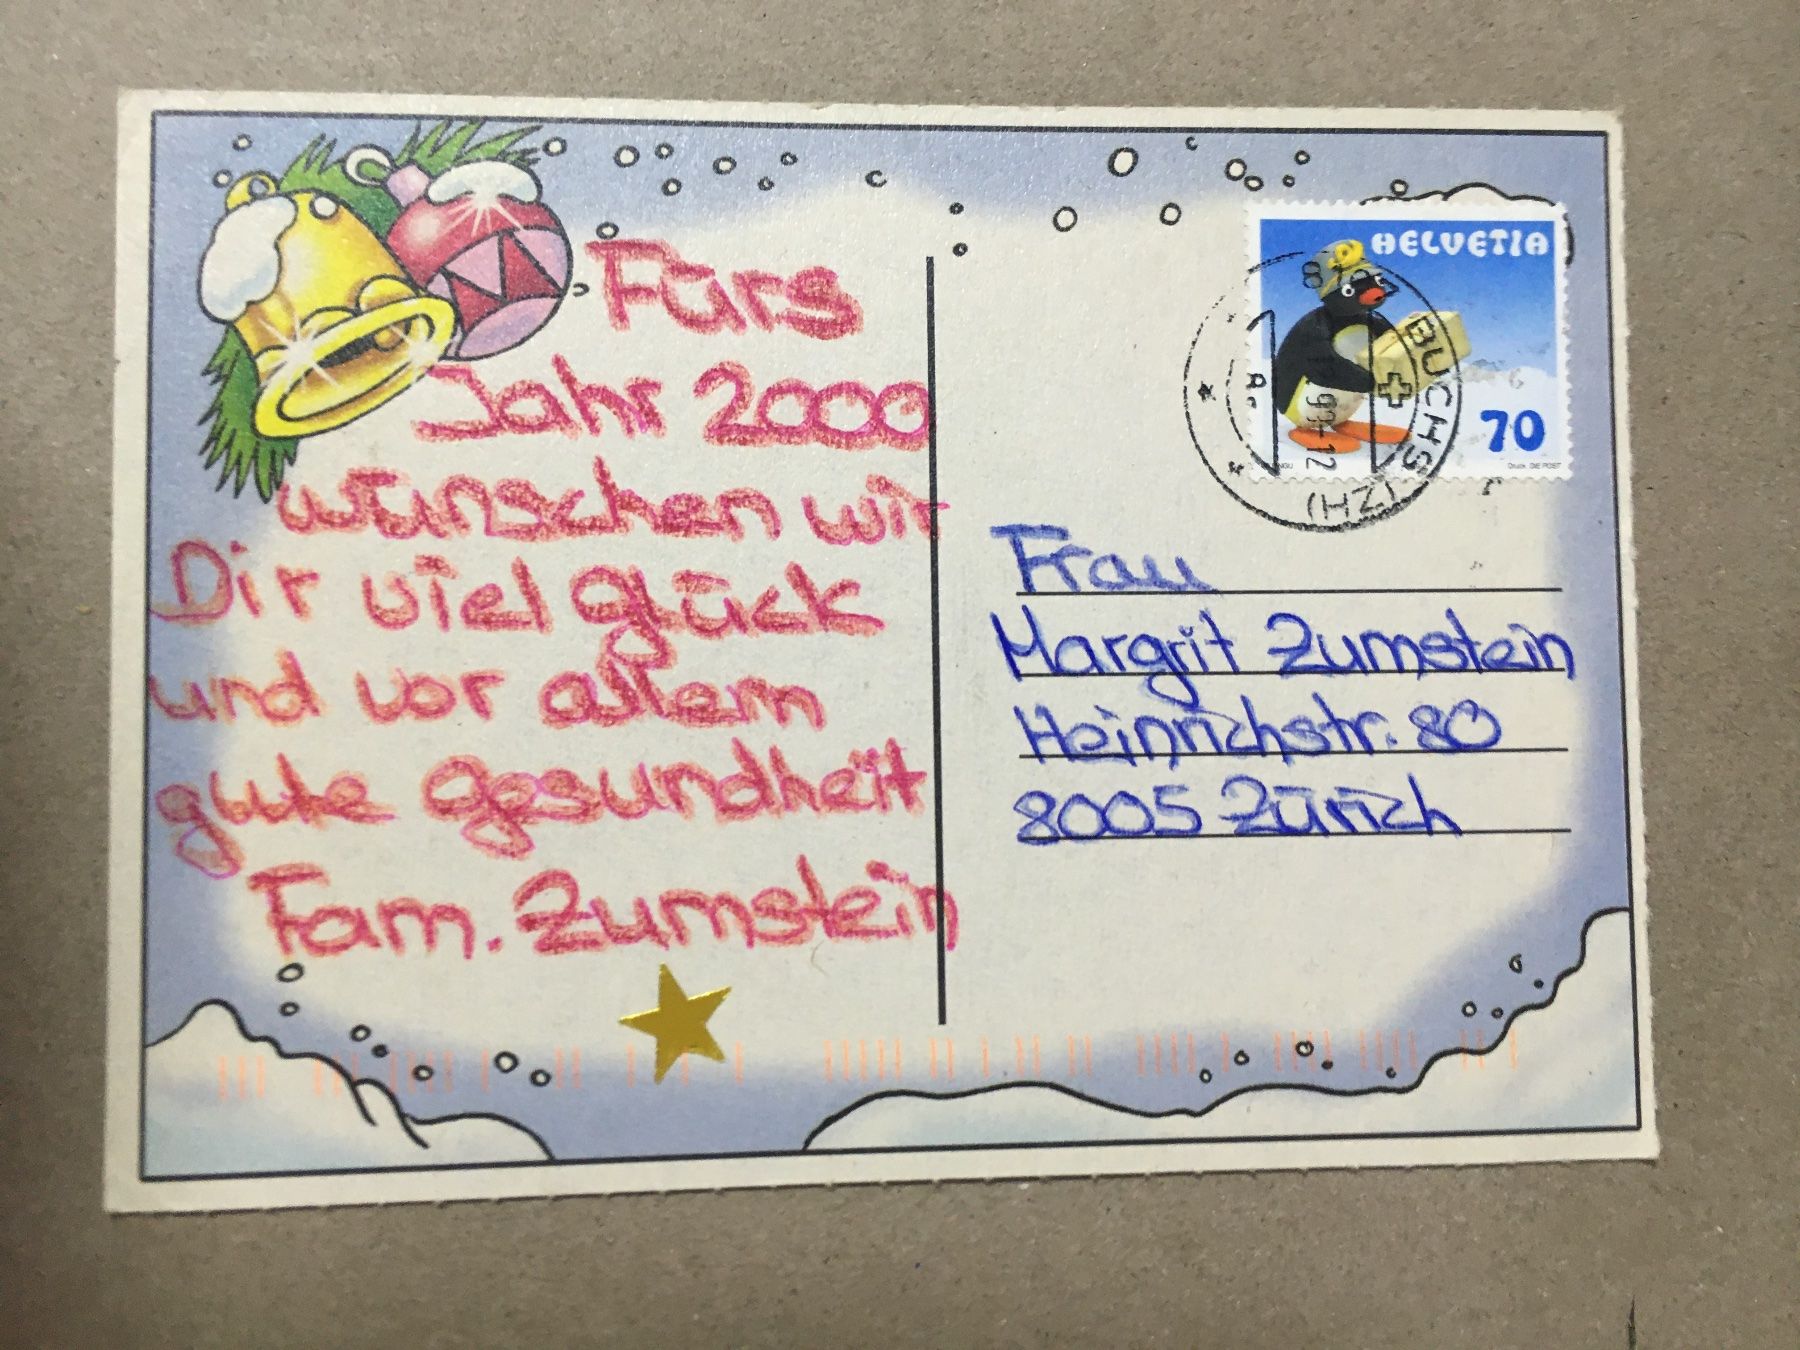 Fürs
Jahr 2000
wünschen wir
Dir viel glück
und vor allem
gute gesundheit
Fam. Zumstein
HELVETIA
70
Druck: DIE POST
BUCHS (ZH)
Frau
Margrit Zumstein
Heinrichstr. 80
8005 Zürich